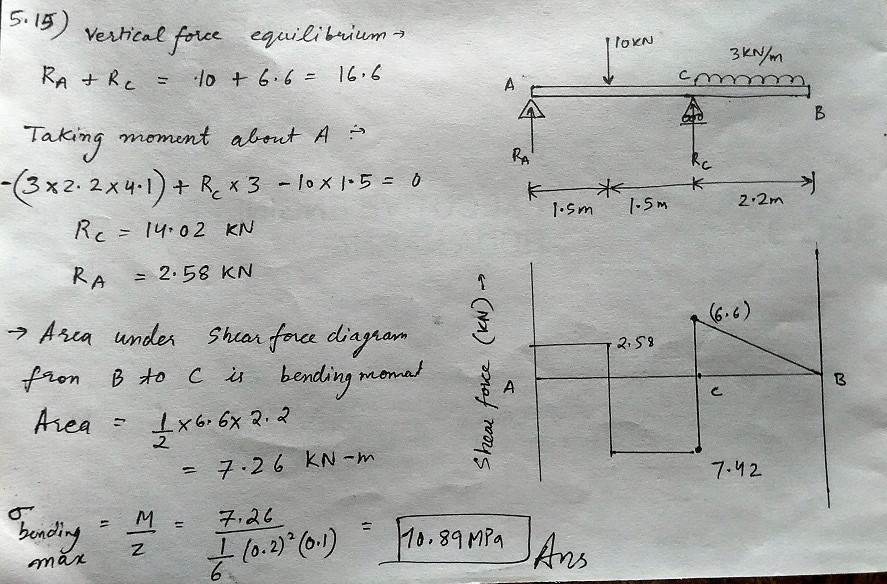 5.15) Vertical force equilibrium →
RA + RC = 10 + 6.6 = 16.6
Taking moment about A ÷>
-(3×2.2×4.1) + RC × 3 - 10 × 1.5 = 0
RC = 14.02 KN
RA = 2.58 KN
→ Area under Shear force diagram
from B to C is bending moment
Area = 1/2 × 6.6 × 2.2
= 7.26 KN-m
σ bending max = M/Z = 7.26 / 1/6 (0.2)² (0.1) = 10.89 MPa Ans
10KN
3KN/m
A
C
B
RA
RC
1.5m
1.5m
2.2m
Shear force (KN) →
(6.6)
2.58
A
C
B
7.42